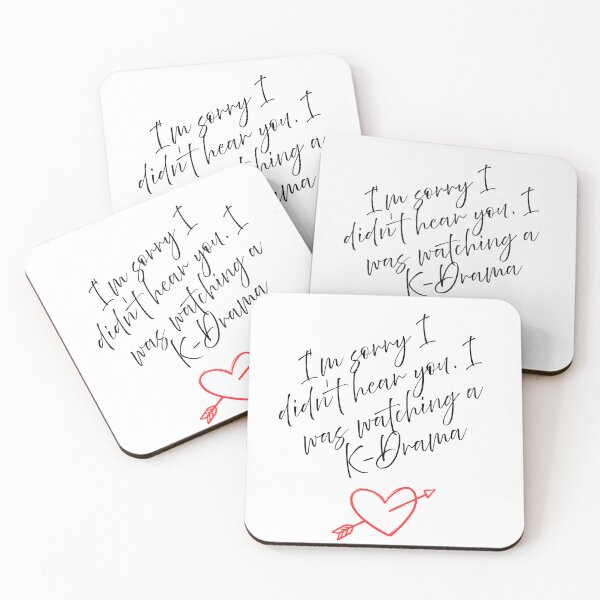 I'm sorry I
didn't hear you. I
a
I'm sorry I
didn't hear you. I
was watching a
K-Drama
I'm sorry I
didn't hear you. I
was watching a
K-Drama
I'm sorry I
didn't hear you. I
was watching a
K-Drama